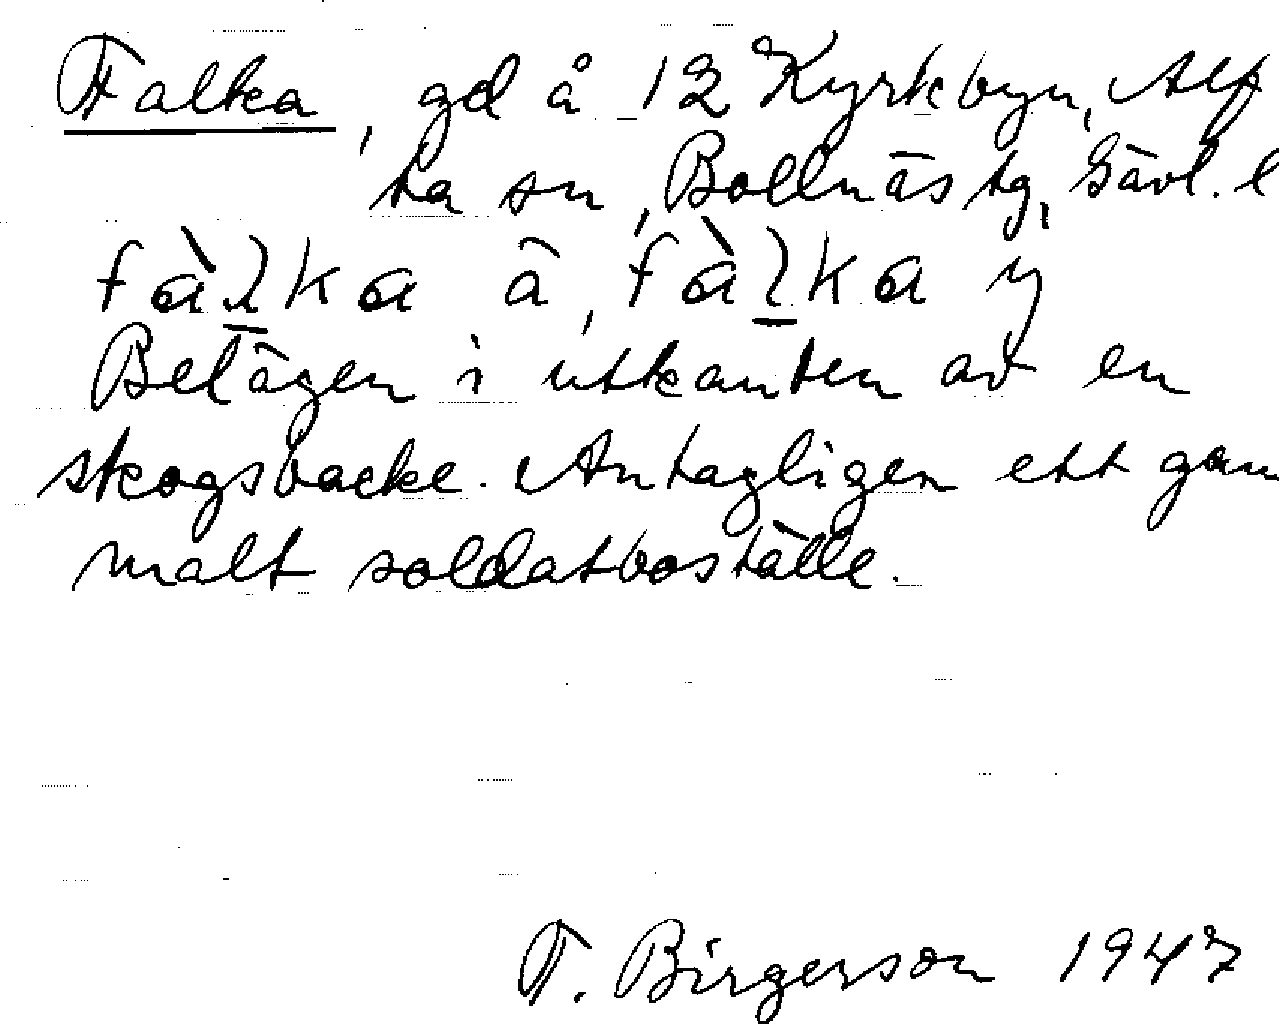 Falka, gd å 12 Kyrkbyn, Alf
ta sn, Bollnäs tg, Gävl. l
fàlka å, fàlka y
Belägen i utkanten av en
skogsbacke. Antagligen ett gam
malt soldatboställe.
T. Birgerson 1947